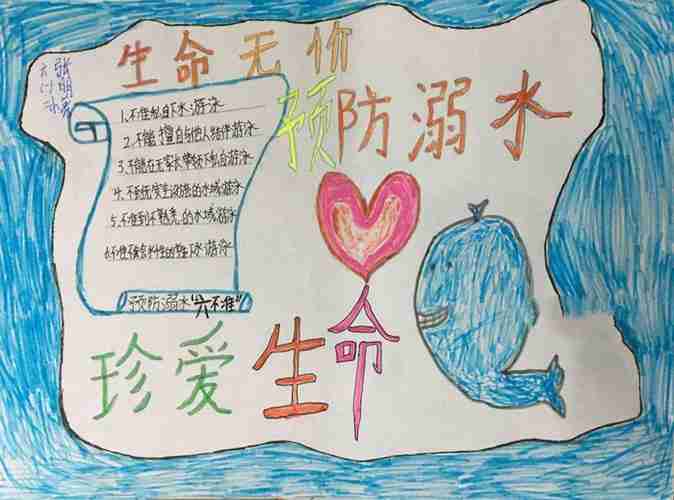 生命无价
预防溺水
1.不准私自下水游泳
2.不能擅自与他人结伴游泳
3.不能在无家长带领下私自游泳
4.不到无安全设施的水域游泳
5.不准到不熟悉的水域游泳
6.不准不会水性的学生下水游泳
预防溺水"六不准"
珍爱生命